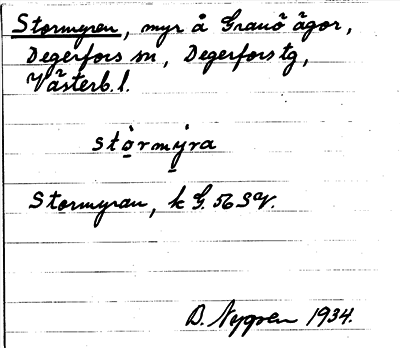 Stormyren, myr å Granö ägor,
Degerfors sn, Degerfors tg,
Västerb. l.
stòrmýra
Stormyran, k G. 56 SV.
D. Nygren 1934.